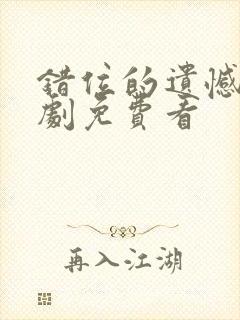 错位的遗憾
劇免費看
再入江湖